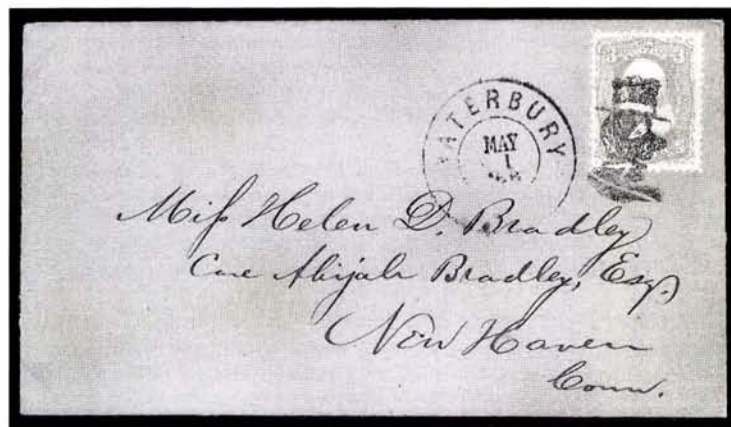 WATERBURY
MAY
1
Miss Helen D. Bradley
Care Abijah Bradley, Esq.
New Haven
Conn.